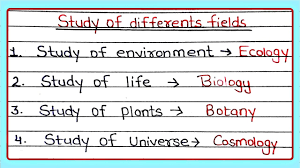 Study of differents fields
1. Study of environment → Ecology
2. Study of life → Biology
3. Study of plants → Botany
4. Study of Universe → Cosmology